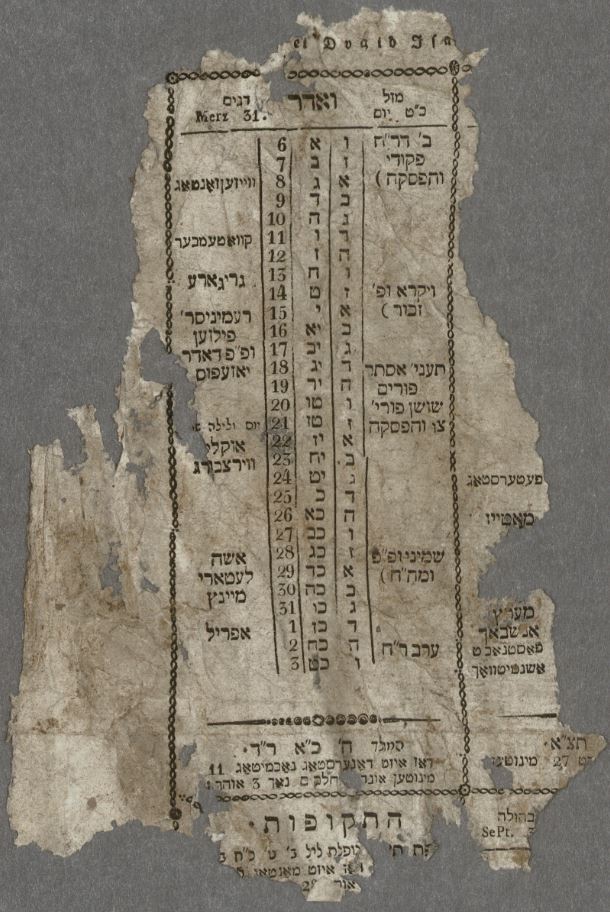 el David Isa
מזל ואדר דגים
כ"ט יום Merz 31.
ב' דר"ח ו א 6
פקודי ז ב 7
והפסקה ) א ג 8 ווייזען זאנטאג
ב ד 9
ג ה 10
ד ו 11 קוואטעמבער
ה ז 12
ו ח 13 גריגארע
ויקרא ופ' ז ט 14
זכור ) א י 15 רעמיניסר'
ב יא 16 פילזען
ג יב 17 ופ"פ דאדר
תעני' אסתר ד יג 18 יאזעפוס
פורים ה יד 19
שושן פורי' ו טו 20
צו והפסקה ז טז 21 יום ולילה
א יז 22 אוקלי
ב יח 23 ווירצבורג
ג יט 24
ד כ 25
ה כא 26
ו כב 27
שמיני ופ"פ ז כג 28 אשה
ומה"ח ) א כד 29 לעטארי
ב כה 30 מיינץ
ג כו 31
ד כז 1 אפריל
ערב ר"ח ה כח 2
ו כט 3
פעטערסטאג
מאטייז
מערץ
אנשבאך
פאסטנאכט
אשנמיטוואך
המולד ה' כ"א ר"ד.
דאז איזט דאנערסטאג נאכמיטאג 11
מינוטען אונד חלקים נאך 3 אוהר.
תצ"א.
27 מינוטען
התקופות.
בהולה
Sept.
נופלת ליל ב' ט'
איזט מאנטאג
אור